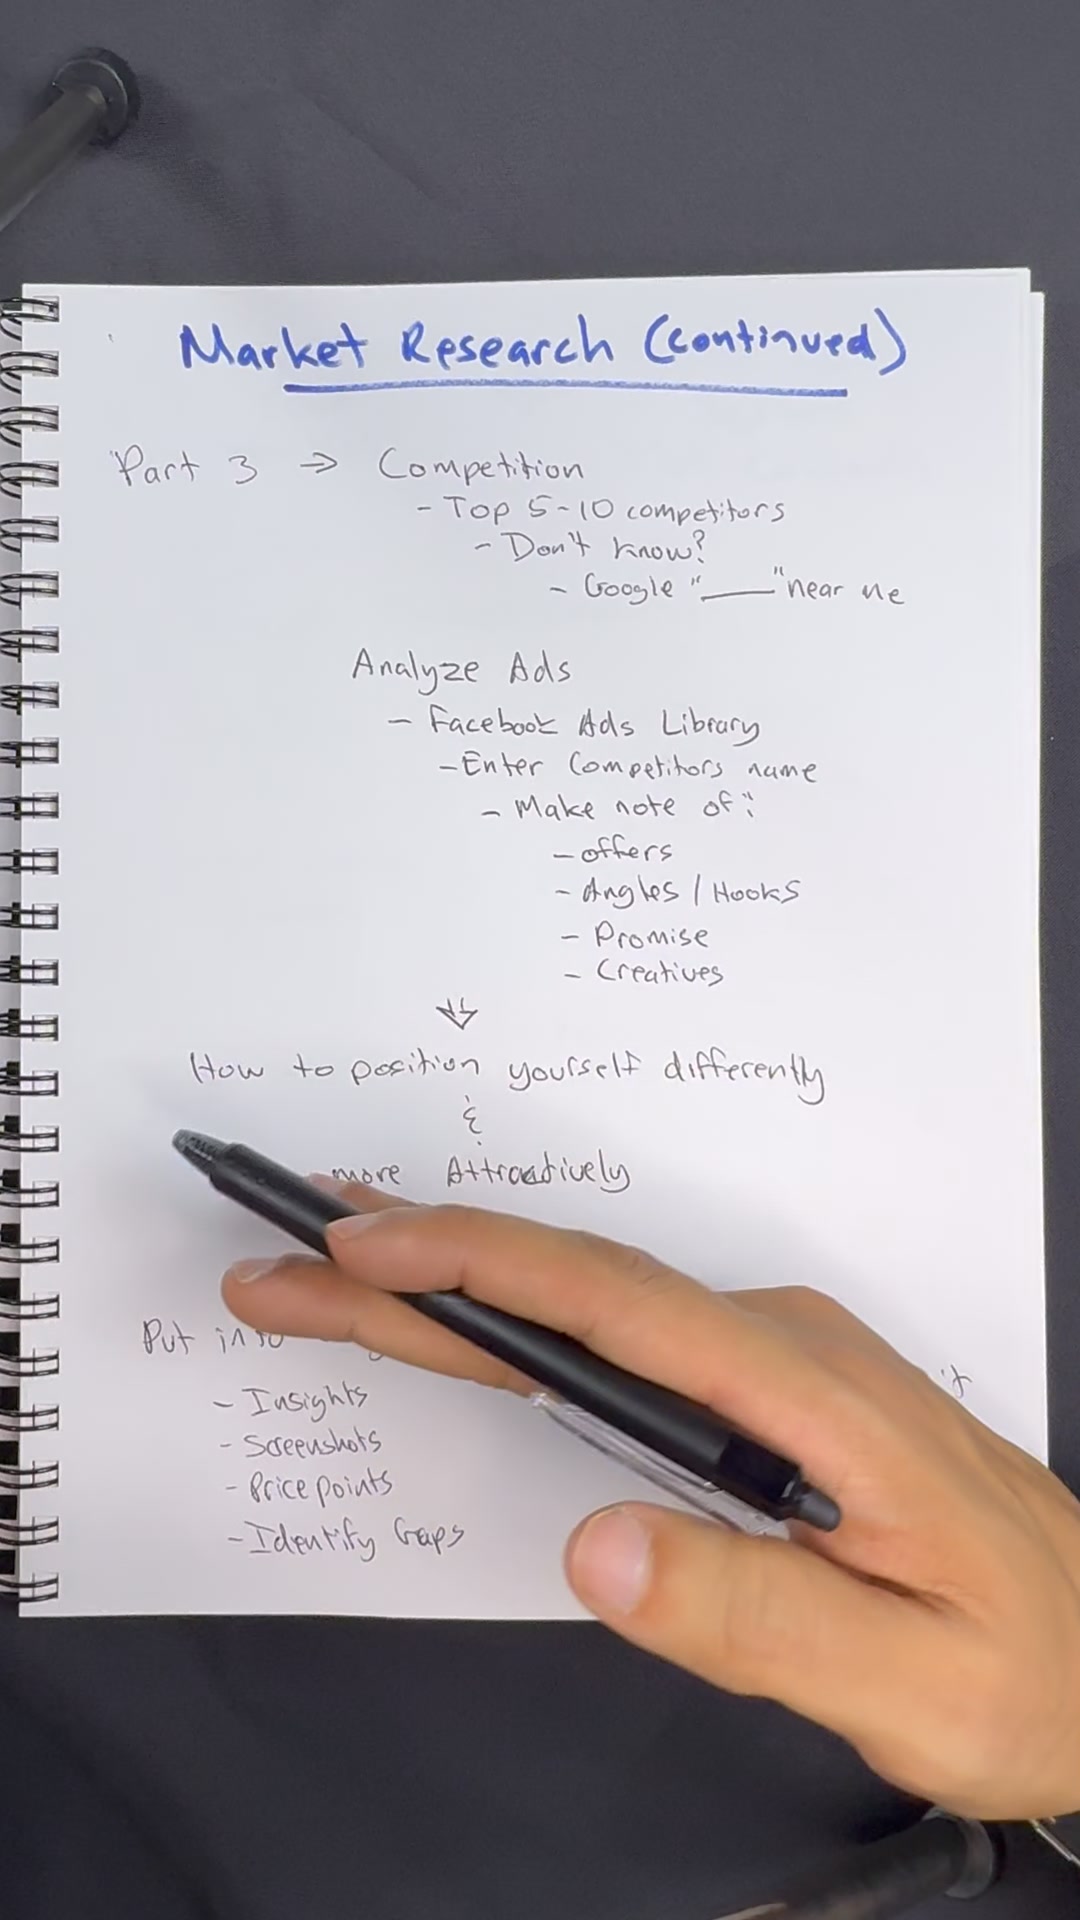 Market Research (continued)
Part 3 → Competition
- Top 5-10 competitors
- Don't know?
- Google "____" near me
Analyze Ads
- Facebook Ads Library
- Enter Competitors name
- Make note of:
- offers
- Angles / Hooks
- Promise
- Creatives
How to position yourself differently
&
more Attractively
Put into
- Insights
- Screenshots
- Price points
- Identify Gaps